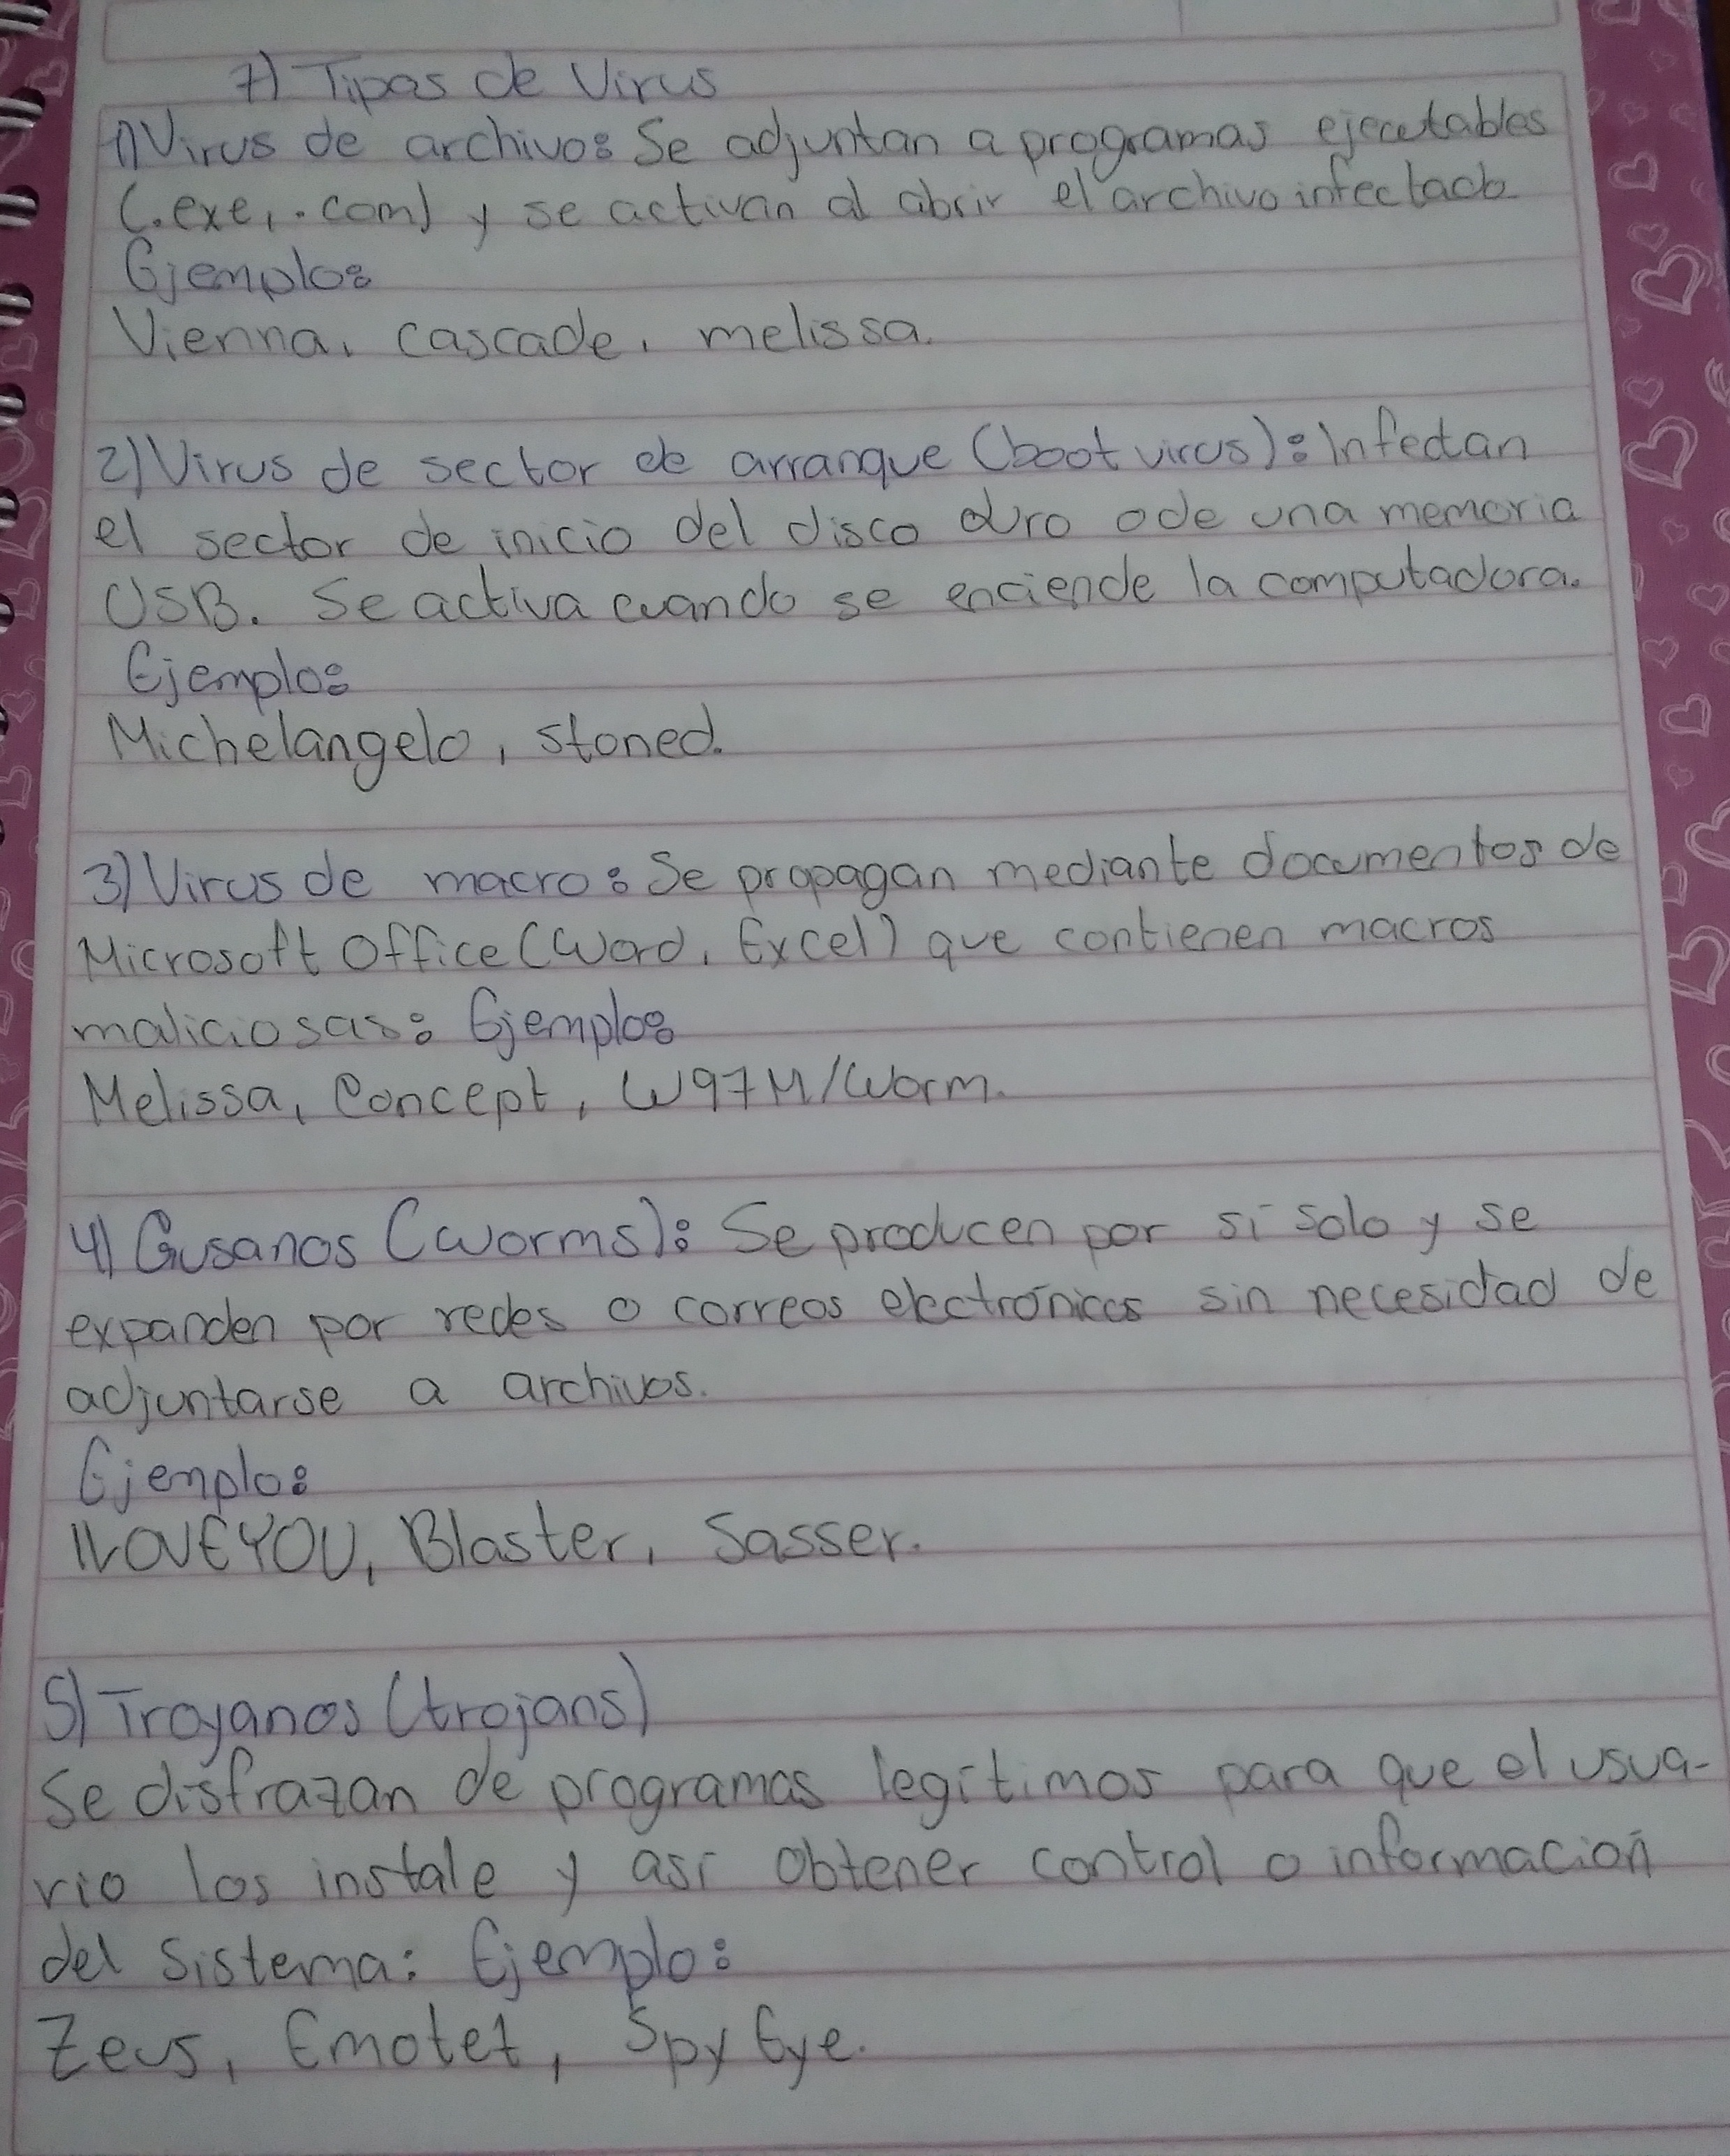 7) Tipos de Virus
1) Virus de archivo: Se adjuntan a programas ejecutables
(.exe, .com) y se activan al abrir el archivo infectado.
Ejemplo:
Vienna, cascade, melissa.
2) Virus de sector de arranque (boot virus): Infectan
el sector de inicio del disco duro o de una memoria
USB. Se activa cuando se enciende la computadora.
Ejemplo:
Michelangelo, stoned.
3) Virus de macro: Se propagan mediante documentos de
Microsoft Office (Word, Excel) que contienen macros
maliciosas: Ejemplo:
Melissa, Concept, W97M/Worm.
4) Gusanos (worms): Se producen por sí solo y se
expanden por redes o correos electrónicos sin necesidad de
adjuntarse a archivos.
Ejemplo:
ILOVEYOU, Blaster, Sasser.
5) Troyanos (trojans)
Se disfrazan de programas legítimos para que el usua-
rio los instale y así obtener control o información
del sistema: Ejemplo:
Zeus, Emotet, Spy Eye.